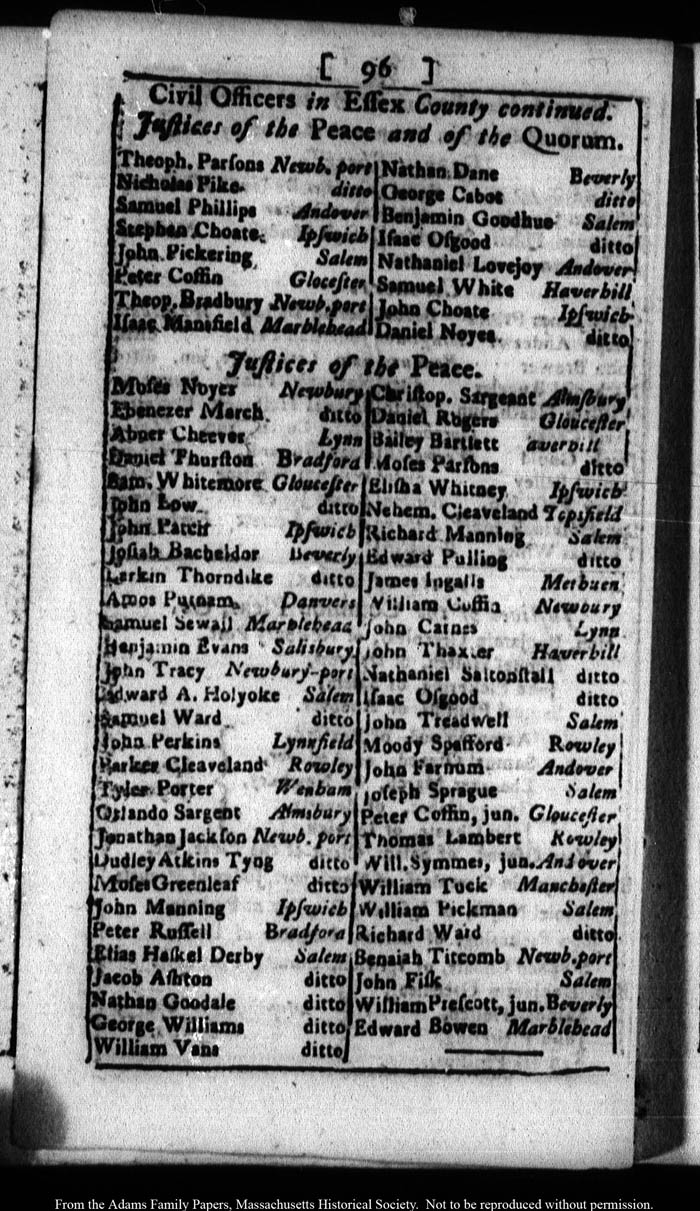 [ 96 ]
Civil Officers in Eſſex County continued.
Juſtices of the Peace and of the Quorum.
Theoph. Parſons Newb. port
Nicholas Pike ditto
Samuel Phillips Andover
Stephen Choate. Ipſwich
John Pickering Salem
Peter Coffin Gloceſter
Theop. Bradbury Newb. port
Iſaac Mansfield Marblehead
Nathan Dane Beverly
George Cabot ditto
Benjamin Goodhue Salem
Iſaac Oſgood ditto
Nathaniel Lovejoy Andover
Samuel White Haverhill
John Choate Ipſwich
Daniel Noyes ditto
Juſtices of the Peace.
Moſes Noyes Newbury
Ebenezer March ditto
Abner Cheever Lynn
Daniel Thurſton Bradford
Sam. Whitemore Glouceſter
John Low ditto
John Patch Ipſwich
Joſiah Bacheldor Beverly
Larkin Thorndike ditto
Amos Putnam Danvers
Samuel Sewall Marblehead
Benjamin Evans Salisbury
John Tracy Newbury-port
Edward A. Holyoke Salem
Samuel Ward ditto
John Perkins Lynnfield
Parker Cleaveland Rowley
Tyler Porter Wenham
Orlando Sargent Almsbury
Jonathan Jackſon Newb. port
Dudley Atkins Tyng ditto
Moſes Greenleaf ditto
John Manning Ipſwich
Peter Ruſſell Bradford
Elias Haſkel Derby Salem
Jacob Aſhton ditto
Nathan Goodale ditto
George Williams ditto
William Vans ditto
Chriſtop. Sargeant Almſbury
Daniel Rogers Glouceſter
Bailey Bartlett averhill
Moſes Parſons ditto
Eliſha Whitney Ipſwich
Nehem. Cleaveland Topsfield
Richard Manning Salem
Edward Pulling ditto
James Ingalls Methuen
William Coffin Newbury
John Carnes Lynn
John Thaxter Haverhill
Nathaniel Saltonſtall ditto
Iſaac Oſgood ditto
John Treadwell Salem
Moody Spafford Rowley
John Farnum Andover
Joſeph Sprague Salem
Peter Coffin, jun. Glouceſter
Thomas Lambert Rowley
Will. Symmes, jun. Andover
William Tuck Mancheſter
William Pickman Salem
Richard Ward ditto
Benaiah Titcomb Newb. port
John Fiſk Salem
William Preſcott, jun. Beverly
Edward Bowen Marblehead
From the Adams Family Papers, Massachusetts Historical Society. Not to be reproduced without permission.